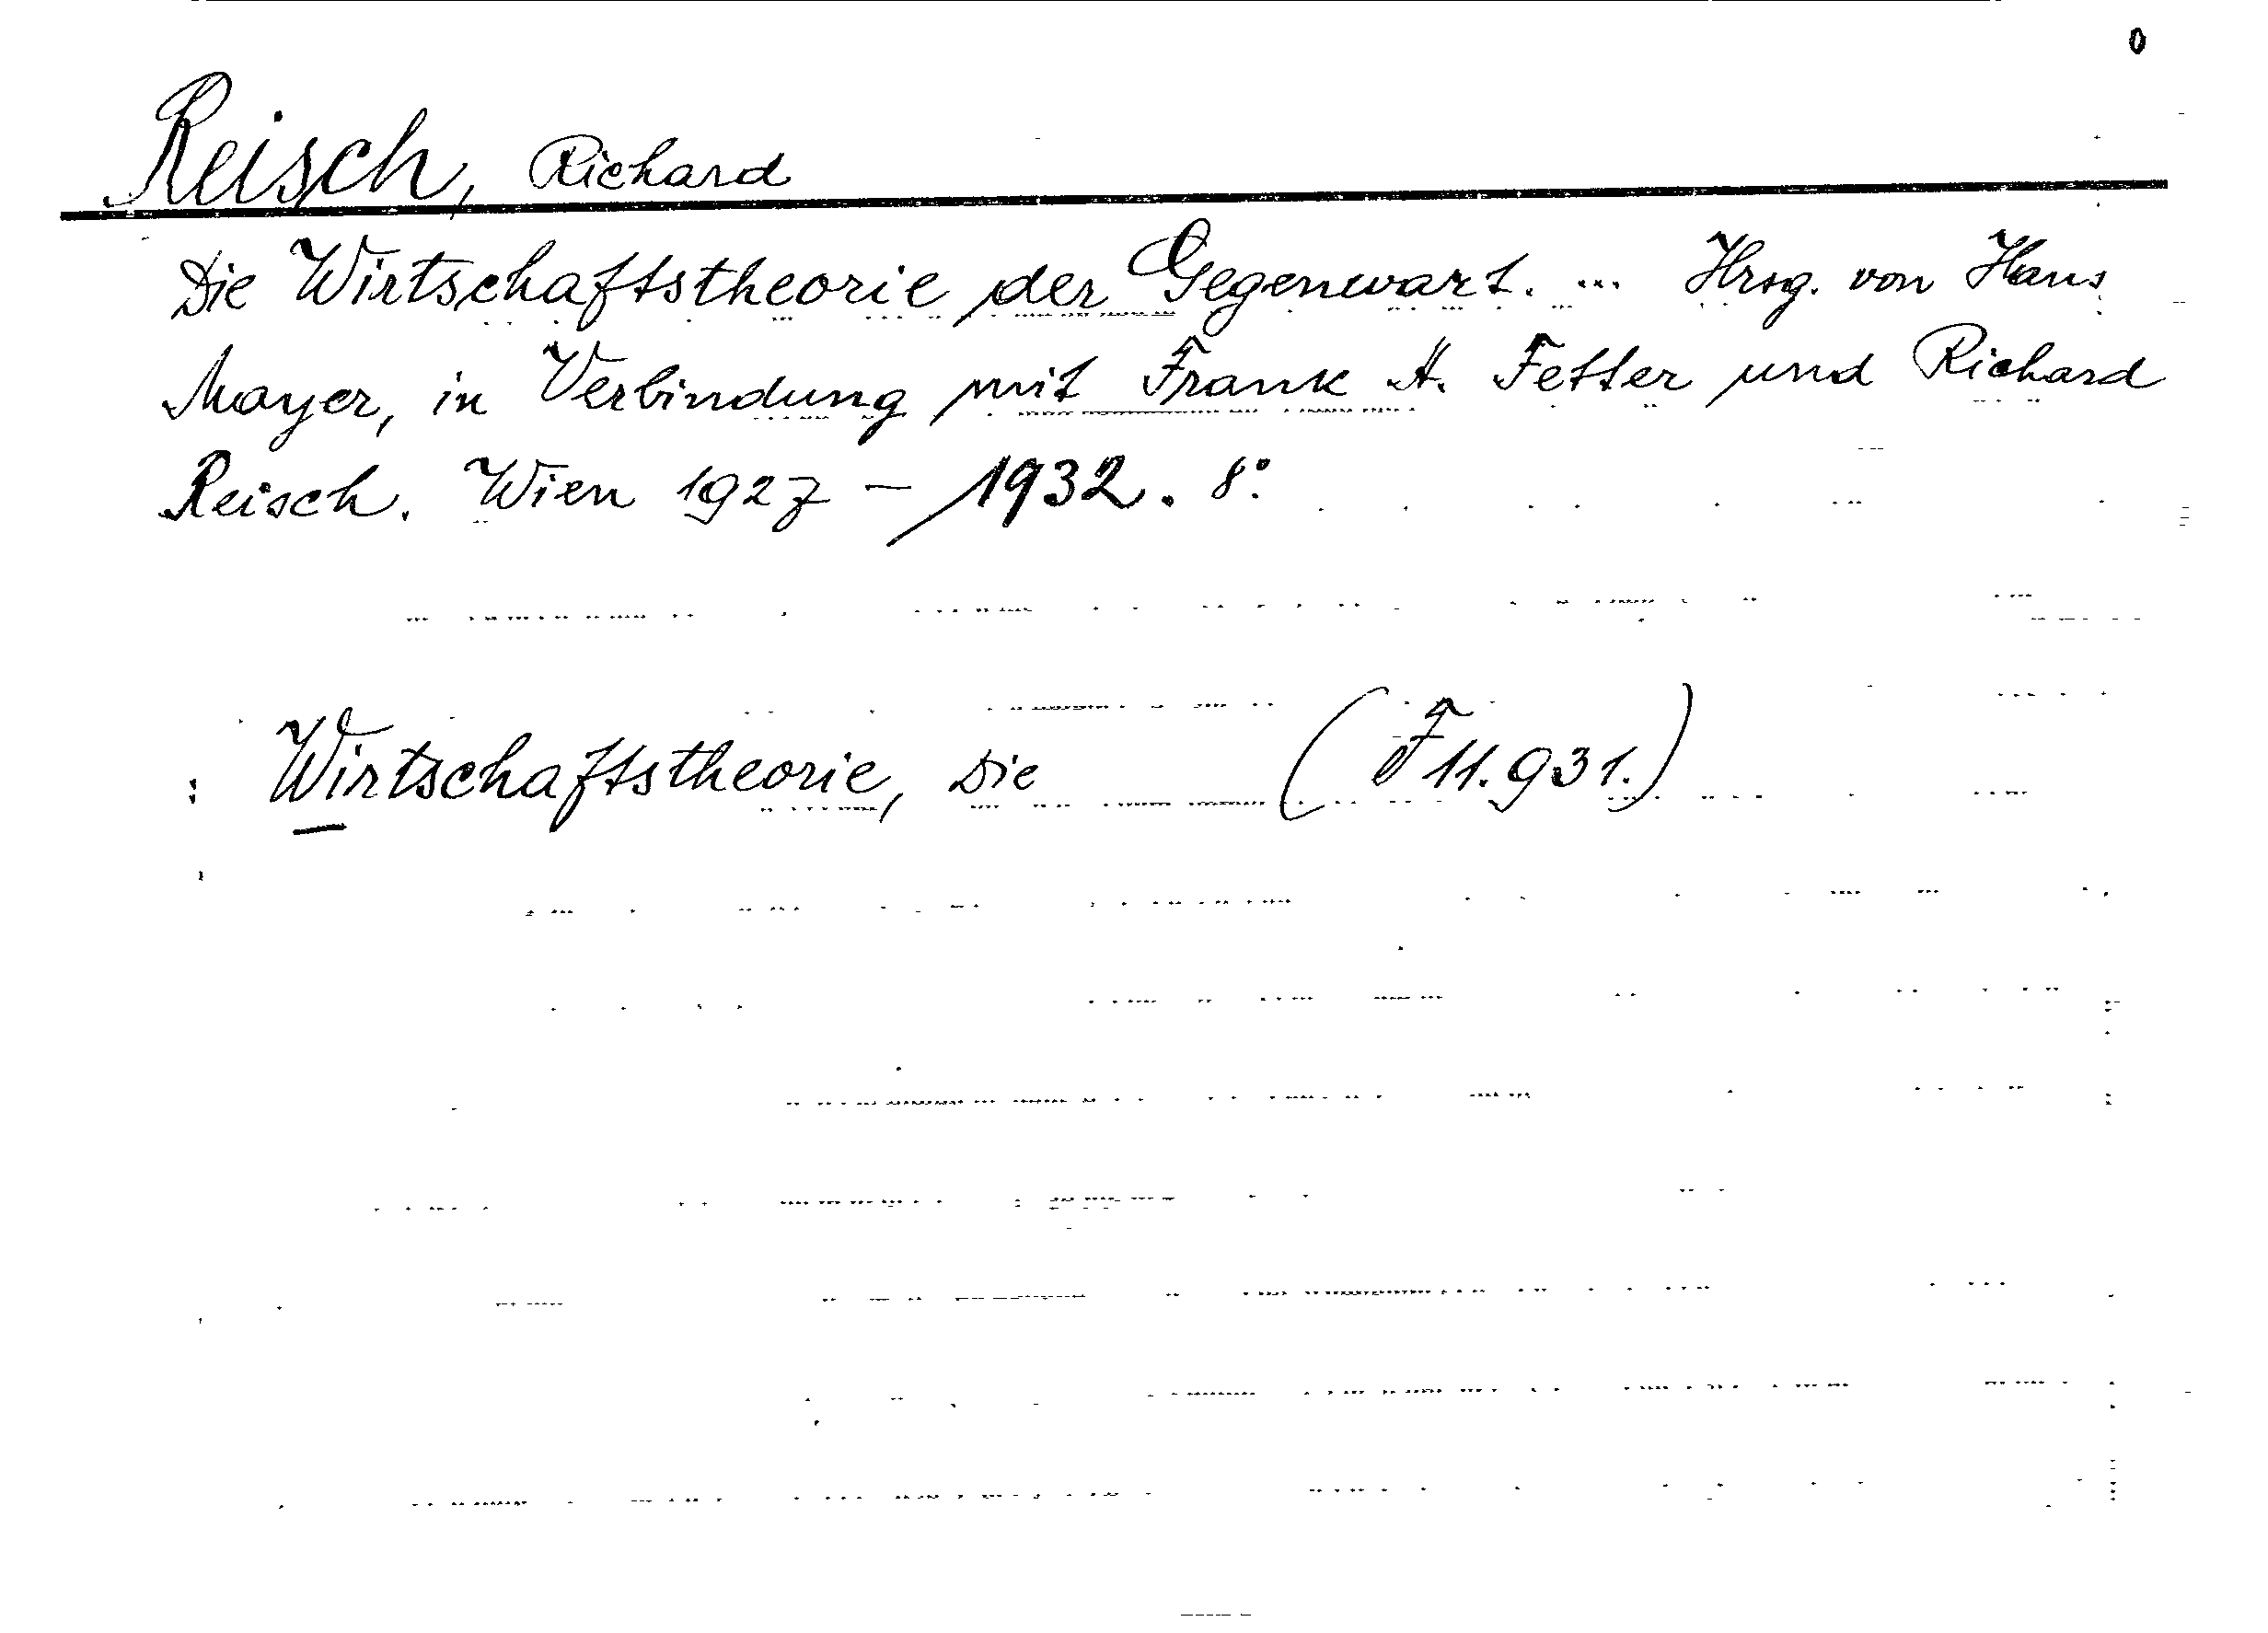 0
Reisch, Richard
Die Wirtschaftstheorie der Gegenwart. ... Hrsg. von Hans
Mayer, in Verbindung mit Frank A. Fetter und Richard
Reisch. Wien 1927 - 1932. 8°.
: Wirtschaftstheorie, Die (F 11.931.)